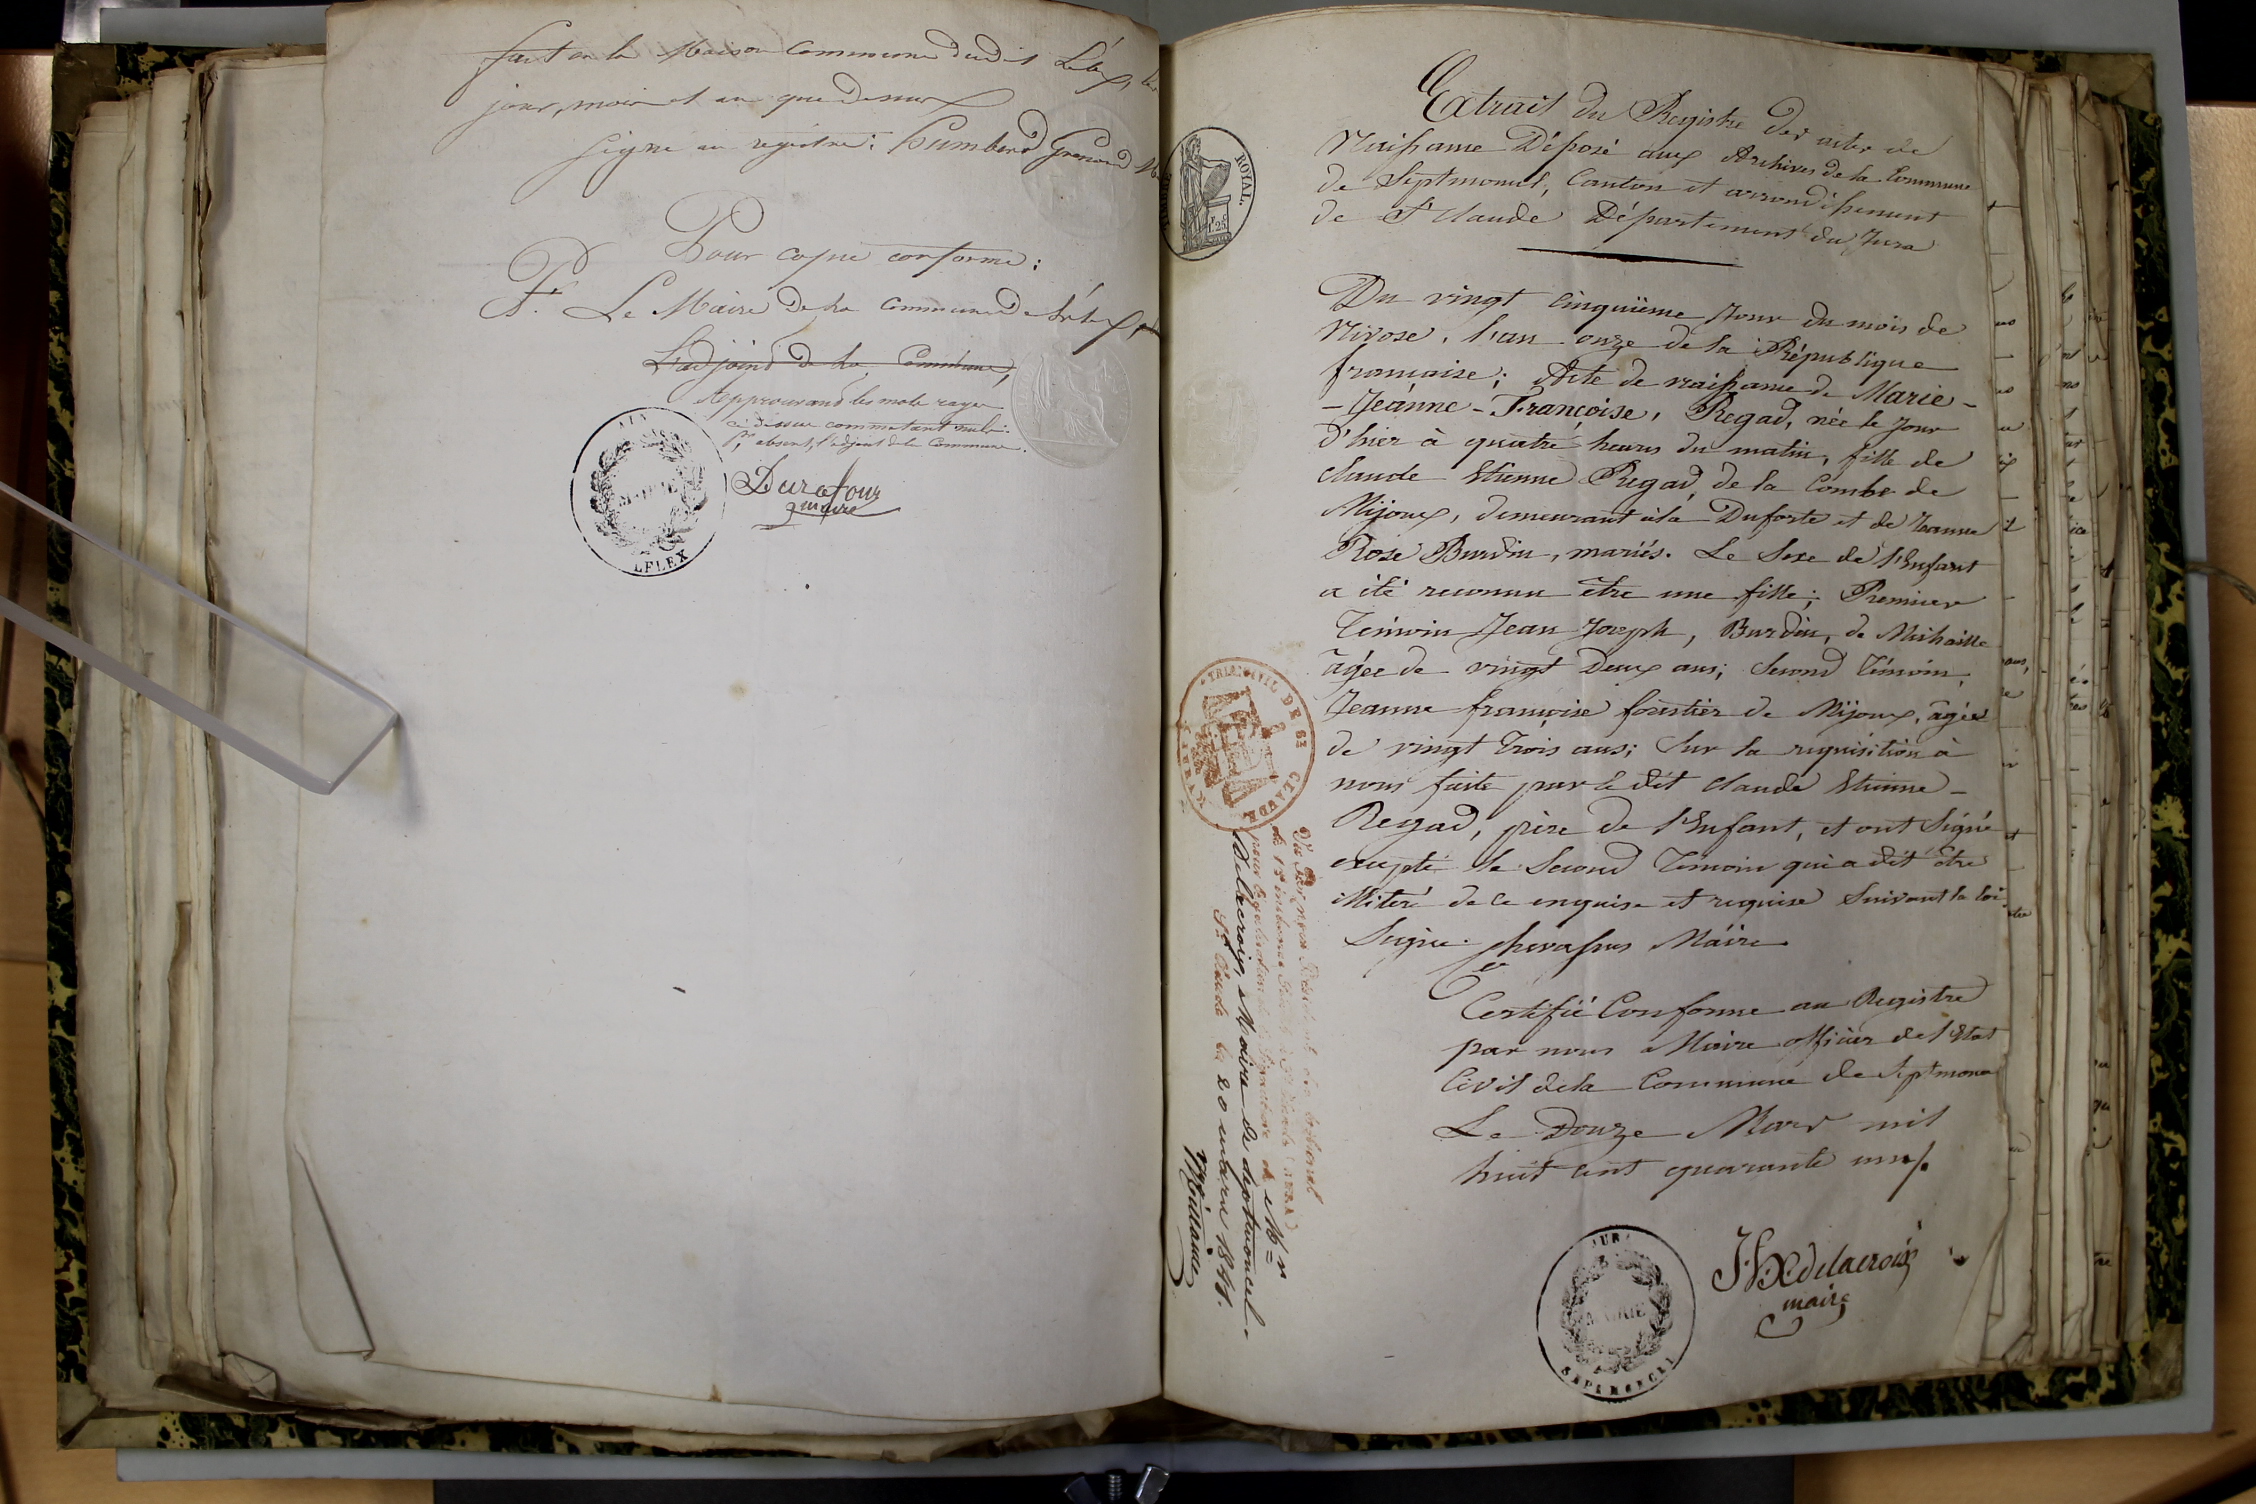 fait en la Maison Commune dudit Lélex les
jour, mois et an que dessus
signé au registre: Humbert Grenard
Pour copie conforme:
Pr. Le Maire de la Commune de Lélex,
L'adjoint de la Commune,
Approuvant les mots rayer
ci dessus comme étant nuls.
pr. absent, l'adjoint de la Commune.
AIN
MAIRIE
LELEX
Durafour
maire
TIMBRE ROYAL.
1.25
Extrait du Registre des actes de
Naissance Déposé aux Archives de la Commune
de Septmoncel, Canton et arrondissement
de St Claude Département du Jura
Du vingt cinquième Jour du mois de
Nivose, l'an onze de la République
française; Acte de naissance de Marie-
-Jeanne-Françoise, Regad, née le Jour
d'hier à quatre heures du matin, fille de
Claude Etienne Regad, de la Combe de
Mijoux, demeurant à la Duforte et de Jeanne
Rose Burdin, mariés. Le Sexe de l'Enfant
a été reconnu être une fille; Premier
Témoin Jean Joseph, Burdin, de Mihaille
âgée de vingt Deux ans; Second Témoin,
Jeanne françoise forestier de Mijoux, âgée
de vingt Trois ans; Sur la requisition à
nous faite par le dit Claude Etienne-
Regad, père de l'Enfant, et ont Signé
excepté le Second Témoin qui a dit être
illiteré de ce enquise et requise Suivant la loi
Signé. Chevassus Maire
Certifié Conforme au Registre
par nous Maire officier de l'Etat
Civil de la Commune de Septmoncel
Le Douze Mars mil
huit cent quarante un
J. Delacroix
maire
JURA
MAIRIE
SEPTMONCEL
TRIB. CIVIL DE ST CLAUDE
Vu Par nous Président du tribunal
de 1re instance Séant à St Claude (JURA)
pour légalisation de la Signature de Mr
Delacroix, Maire de Septmoncel.
St Claude le 20 mars 1841.